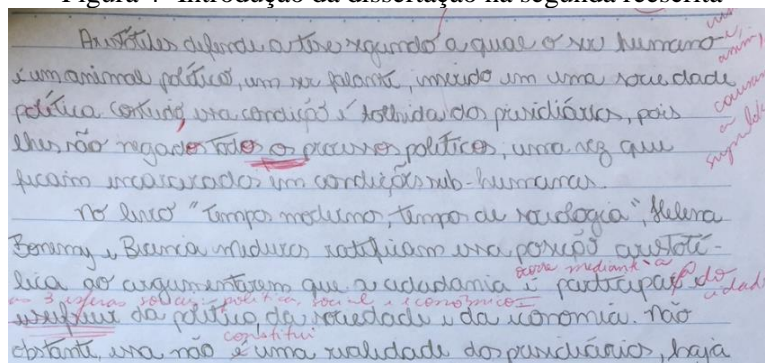 Figura 4- Introdução da dissertação na segunda reescrita
Aristóteles defendeu a tese segundo a qual o ser humano
é um animal político, um ser falante, inserido em uma sociedade
política contudo, essa condição é tolhida dos presidiários, pois
lhes são negados todos os processos políticos, uma vez que
ficam encarcerados em condições sub-humanas.
No livro "Tempos modernos, tempos de sociologia", Helena
Bomeny e Bianca Medeiros ratificam essa posição aristoté-
lica ao argumentarem que a cidadania é participação do
ocorre mediante a
cidad
as 3 esferas sociais: política, social e econômica
usufruir da política, da sociedade e da economia. Não
constitui
obstante, essa não é uma realidade dos presidiários, haja